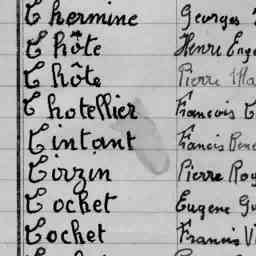 Thermine Georges
Thôte Henri Eug
Thôte Pierre Ma
Thotellier Francois
Tintant Francis René
Tirzin Pierre Roy
Tochet Eugene Gu
Tochet Francis Vi